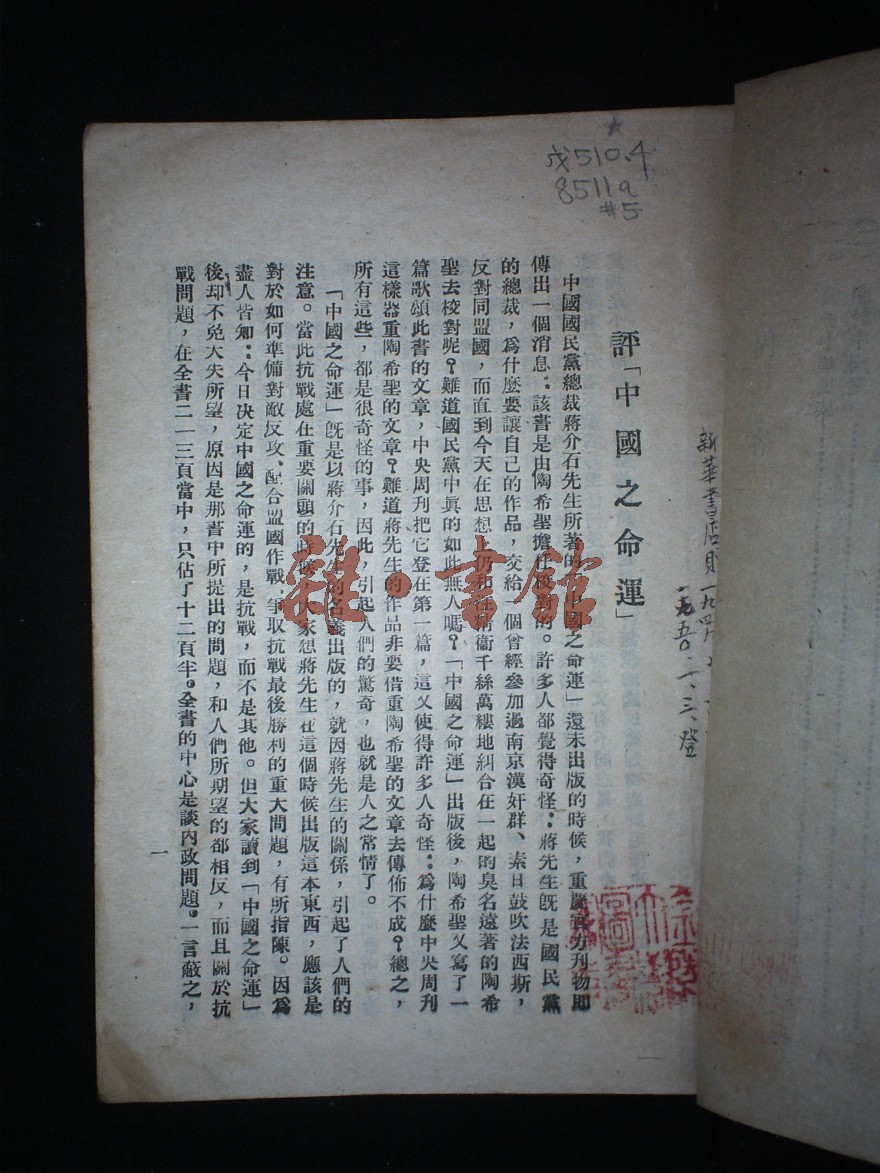 戊510.4
8511a
#5
評「中國之命運」
中國國民黨總裁蔣介石先生所著的「中國之命運」還未出版的時候，重慶官方刊物即
傳出一個消息：該書是由陶希聖擔任校對的。許多人都覺得奇怪：蔣先生旣是國民黨
的總裁，爲什麽要讓自己的作品，交給一個曾經參加過南京漢奸群、素日鼓吹法西斯，
反對同盟國，而直到今天在思想上仍和汪精衞千絲萬縷地糾合在一起的臭名遠著的陶希
聖去校對呢？難道國民黨中眞的如此無人嗎？「中國之命運」出版後，陶希聖又寫了一
篇歌頌此書的文章，中央周刊把它登在第一篇，這又使得許多人奇怪：爲什麽中央周刊
這樣器重陶希聖的文章？難道蔣先生的作品非要借重陶希聖的文章去傳佈不成？總之，
所有這些，都是很奇怪的事，因此，引起人們的驚奇，也就是人之常情了。
「中國之命運」旣是以蔣介石先生的名義出版的，就因蔣先生的關係，引起了人們的
注意。當此抗戰處在重要關頭的時候，大家想蔣先生在這個時候出版這本東西，應該是
對於如何準備對敵反攻、配合盟國作戰、爭取抗戰最後勝利的重大問題，有所指陳。因爲
盡人皆知：今日决定中國之命運的，是抗戰，而不是其他。但大家讀到「中國之命運」
後却不免大失所望，原因是那書中所提出的問題，和人們所期望的都相反，而且關於抗
戰問題，在全書二一三頁當中，只佔了十二頁半。全書的中心是談內政問題。一言蔽之，
一
新華書店
一九五〇、一、三、登
雜·書館